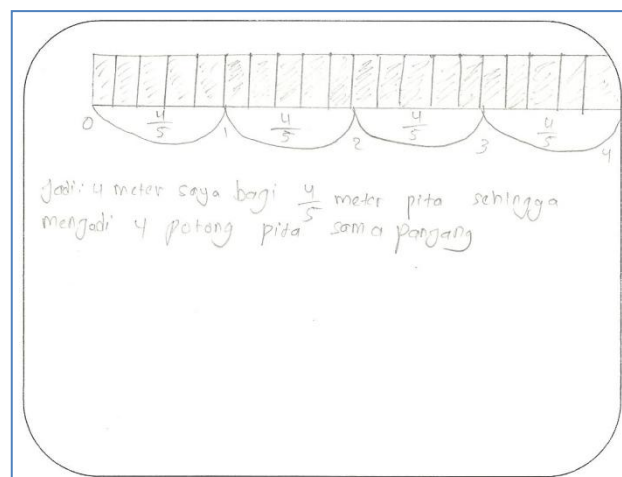 4/5 4/5 4/5 4/5
0 1 2 3 4
Jadi: 4 meter saya bagi 4/5 meter pita sehingga
mengadi 4 potong pita sama pangang